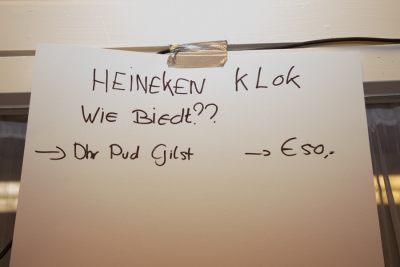 HEINEKEN KLOK
Wie Biedt??
→ Dhr Pud Gilst → €50,-